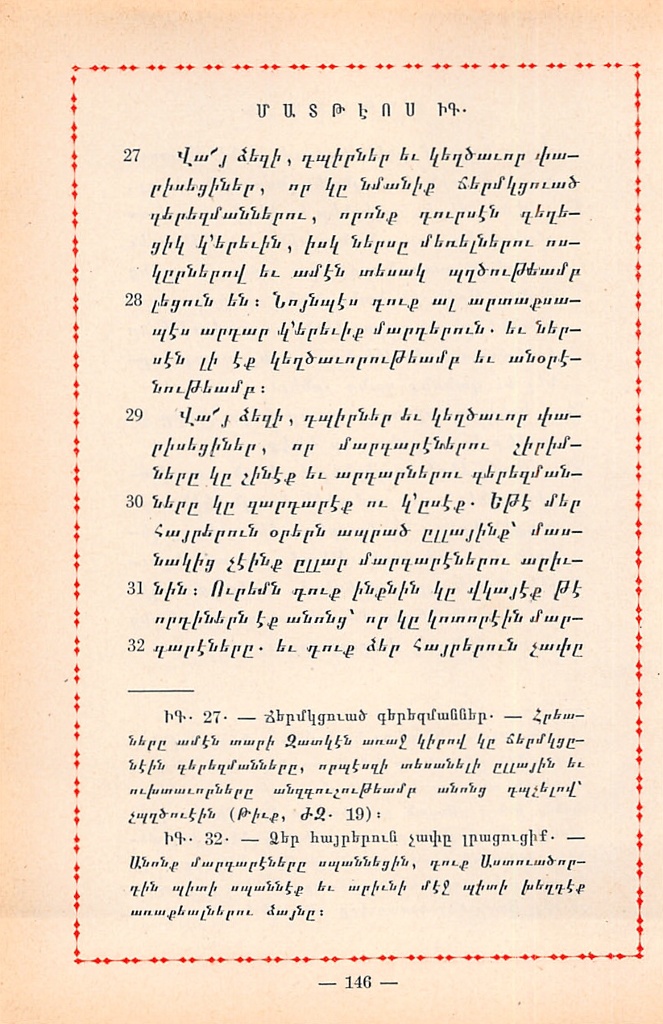 ՄԱՏԹԷՈՍ ԻԳ.
27 Վա՜յ ձեզի, դպիրներ եւ կեղծաւոր փա–
րիսեցիներ, որ կը նմանիք ճերմկցուած
գերեզմաններու, որոնք դուրսէն գեղե–
ցիկ կ'երեւին, իսկ ներսը մեռելներու ոս–
կըրներով եւ ամէն տեսակ պղծութեամբ
28 լեցուն են: Նոյնպէս դուք ալ արտաքսա–
պէս արդար կ'երեւիք մարդերուն. եւ ներ–
սէն լի էք կեղծաւորութեամբ եւ անօրէ–
նութեամբ:
29 Վա՜յ ձեզի, դպիրներ եւ կեղծաւոր փա–
րիսեցիներ, որ մարգարէներու շիրիմ–
ները կը շինէք եւ արդարներու գերեզման–
30 ները կը զարդարէք ու կ'ըսէք. Եթէ մեր
Հայրերուն օրերն ապրած ըլլայինք՝ մաս–
նակից չէինք ըլլար մարգարէներու արիւ–
31 նին: Ուրեմն դուք ինքնին կը վկայէք թէ
որդիներն էք անոնց՝ որ կը կոտորէին մար–
32 գարէները. եւ դուք ձեր Հայրերուն չափը
ԻԳ. 27. — Ճերմկցուած գերեզմաններ. — Հրեա–
ները ամէն տարի Զատկէն առաջ կիրով կը ճերմկցը–
նէին գերեզմանները, որպէսզի տեսանելի ըլլային եւ
ուխտաւորները անզգուշութեամբ անոնց դպչելով՝
չպղծուէին (Թիւք, ԺԶ. 19):
ԻԳ. 32. — Ձեր հայրերուն չափը լրացուցիք. —
Անոնք մարգարէները սպաննեցին, դուք Աստուածոր–
դին պիտի սպաննէք եւ արիւնի մէջ պիտի խեղդէք
առաքեալներու ձայնը:
— 146 —